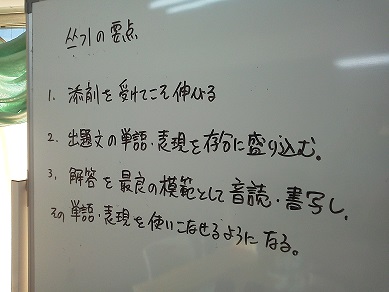 쓰기の要点
1. 添削を受けてこそ伸びる
2. 出題文の単語・表現を存分に盛り込む。
3. 解答を最良の模範として音読・書写し、
その単語・表現を使いこなせるようになる。